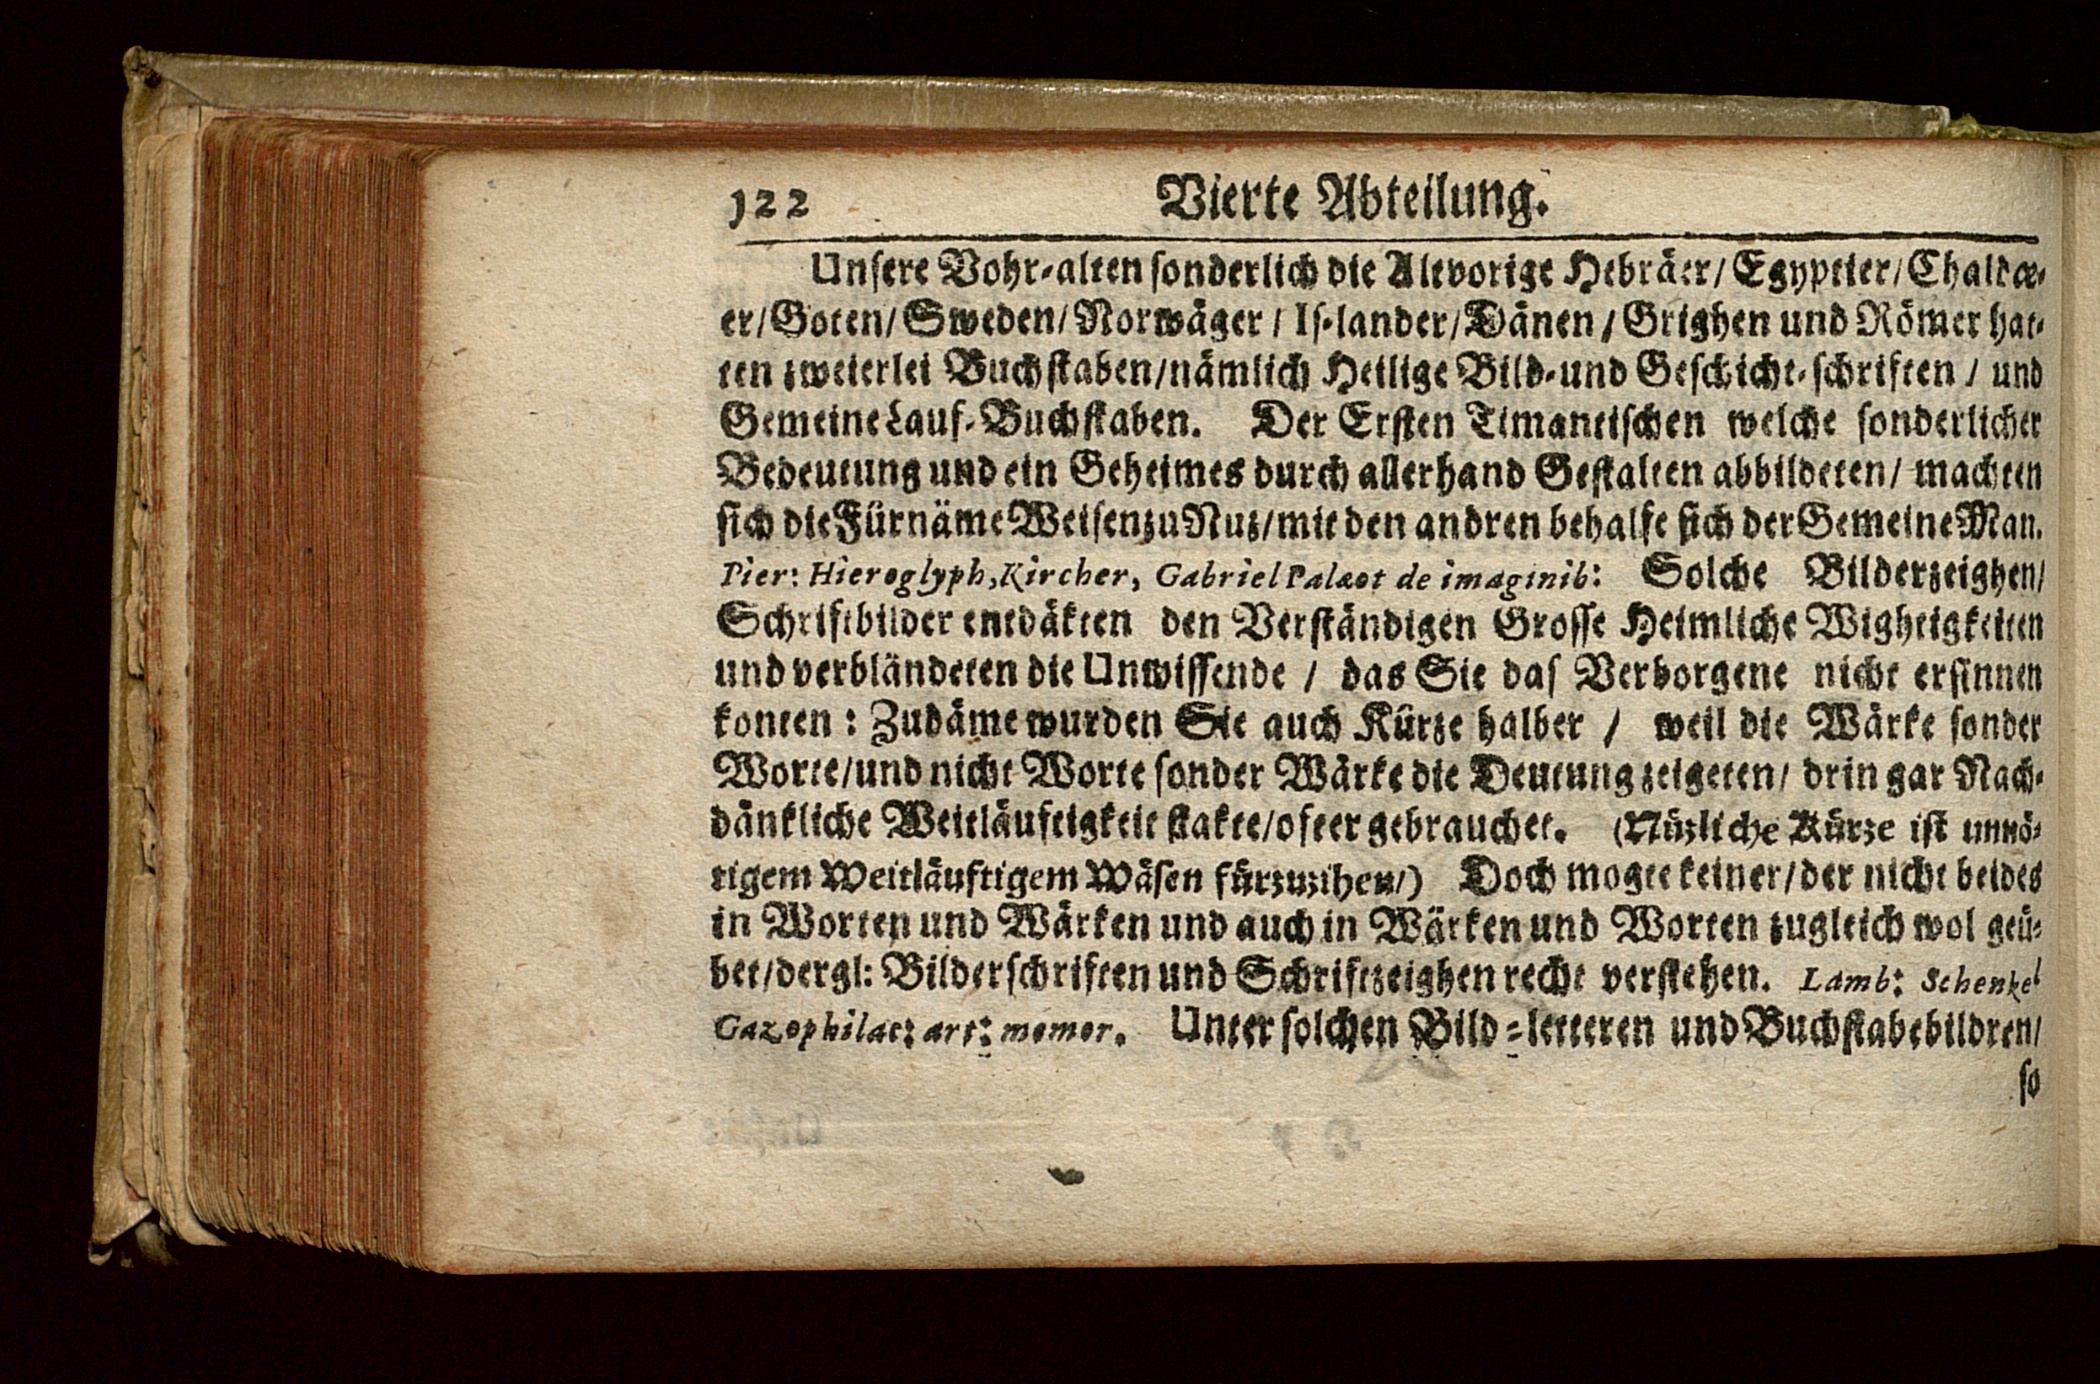 122 Vierte Abteilung.
Unsere Vohr-alten sonderlich die Altvorige Hebräer/ Egyptier/ Chaldæ-
er/ Goten/ Sweden/ Norwäger / Is-lander/ Dänen / Grighen und Römer hat-
ten zweierlei Buchstaben/ nämlich Heilige Bild- und Geschicht-schriften / und
Gemeine Lauf-Buchstaben. Der Ersten Timantischen welche sonderlicher
Bedeutung und ein Geheimes durch allerhand Gestalten abbildeten/ machten
sich die Fürnäme Weisen zu Nuz/ mit den andren behalfe sich der Gemeine Man.
Pier: Hieroglyph, Kircher, Gabriel Palæot de imaginib: Solche Bilderzeighen/
Schriftbilder entdäkten den Verständigen Grosse Heimliche Wightigkeiten
und verbländeten die Unwissende / das Sie das Verborgene nicht ersinnen
konten : Zudäme wurden Sie auch Kürze halber / weil die Wärke sonder
Worte/ und nicht Worte sonder Wärke die Deutung zeigeten/ drin gar Nach-
dänkliche Weitläuftigkeit stakte/ ofter gebrauchet. (Nüzliche Kürze ist unnö-
tigem Weitläuftigem Wäsen fürzuzihen/) Doch mogte keiner/ der nicht beides
in Worten und Wärken und auch in Wärken und Worten zugleich wol geü-
bet/ dergl: Bilderschriften und Schriftzeighen recht verstehen. Lamb: Schenkel
Gazophilac: art: memor. Unter solchen Bild-letteren und Buchstabebildren/
so